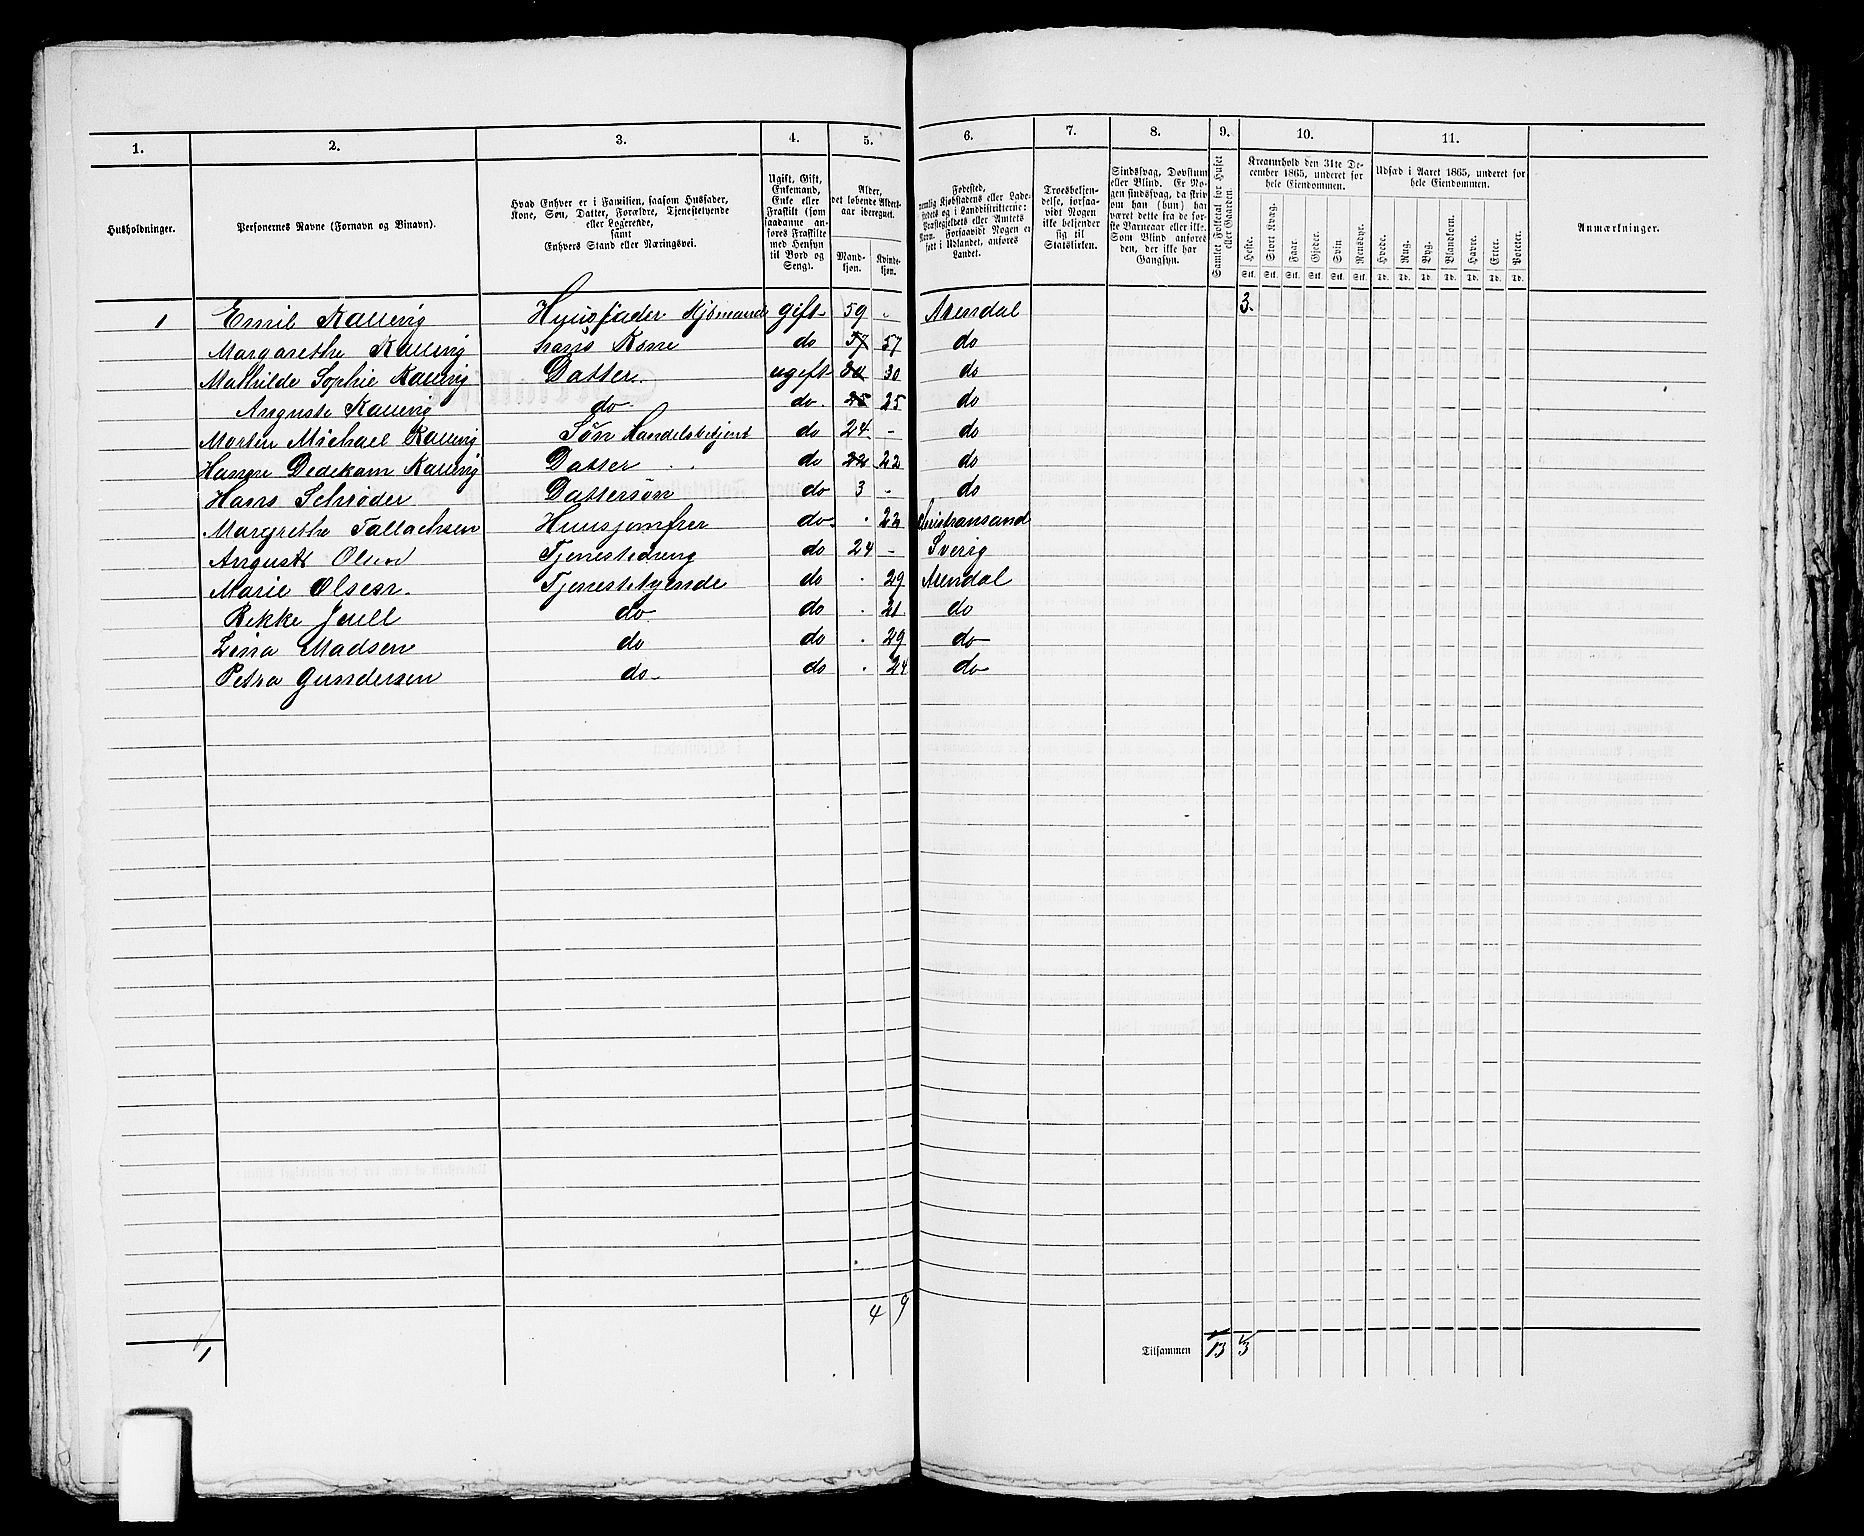 1. 2. 3. 4. 5. 6. 7. 8. 9. 10. 11.
Husholdninger.
Personernes Navne (Fornavn og Binavn).
Hvad Enhver er i Familien, saasom Husfader,
Kone, Søn, Datter, Forældre, Tjenestetyende
eller Logerende,
samt
Enhvers Stand eller Næringsvei.
Ugift, Gift,
Enkemand,
Enke eller
Fraskilt (som
saadanne an-
føres Fraskilte
med Hensyn
til Bord og
Seng).
Alder,
det løbende Alders-
aar iberegnet.
Mand-
kjøn.
Kvinde-
kjøn.
Fødested,
nemlig Kjøbstadens eller Lade-
stedets og i Landdistrikterne:
Præstegjeldets eller Amtets
Navn. Forsaavidt Nogen er
født i Udlandet, anføres
Landet.
Troesbekjen-
delse, forsaa-
vidt Nogen
ikke bekjender
sig til
Statskirken.
Sindssvag, Døvstum
eller Blind. Er No-
gen sindssvag, da skriv
om han (hun) har
været dette fra de før-
ste Barneaar eller ikke.
Som Blind anføres
den, der ikke har
Gangsyn.
Samlet Folketal for Huset
eller Gaarden.
Kreaturhold den 31te De-
cember 1865, underet for
hele Eiendommen.
Heste. Stort Kvæg. Faar. Gjeder. Svin. Rensdyr.
Stk. Stk. Stk. Stk. Stk. Stk.
Udsæd i Aaret 1865, underet for
hele Eiendommen.
Hvede. Rug. Byg. Blandkorn. Havre. Erter. Poteter.
Td. Td. Td. Td. Td. Td. Td.
Anmærkninger.
1 Emil Kallevig Huusfader Kjømand gift 59 - Arendal 3.
Margarethe Kallevig hans Kone do 57 57 do
Mathilde Sophie Kallevig Datter. ugift 30 30 do
Auguste Kallevig do do. 25 25 do
Morten Michael Kallevig Søn Handelsbetjent do 24 - do
Hanne Dedekam Kallevig Datter do 22 22 do
Hans Schrøder Dattersøn do 3 - do
Margrethe Tallachsen Huusjomfrer do. 22 Christiansand
August Olsen Tjenestedreng do 24 - Sverig
Marie Olsen. Tjenestetyende do 29 Arendal
Rikke Juell do do 21 do
Lina Madsen do do 29 do
Petra Gundersen do- do 24 do
4 9
1 Tilsammen 13 3